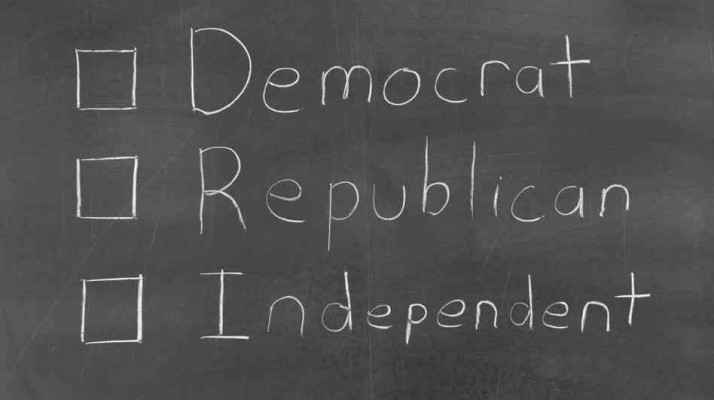 Democrat
Republican
Independent